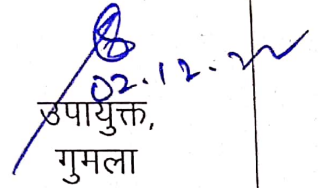 02.12.22
उपायुक्त,
गुमला